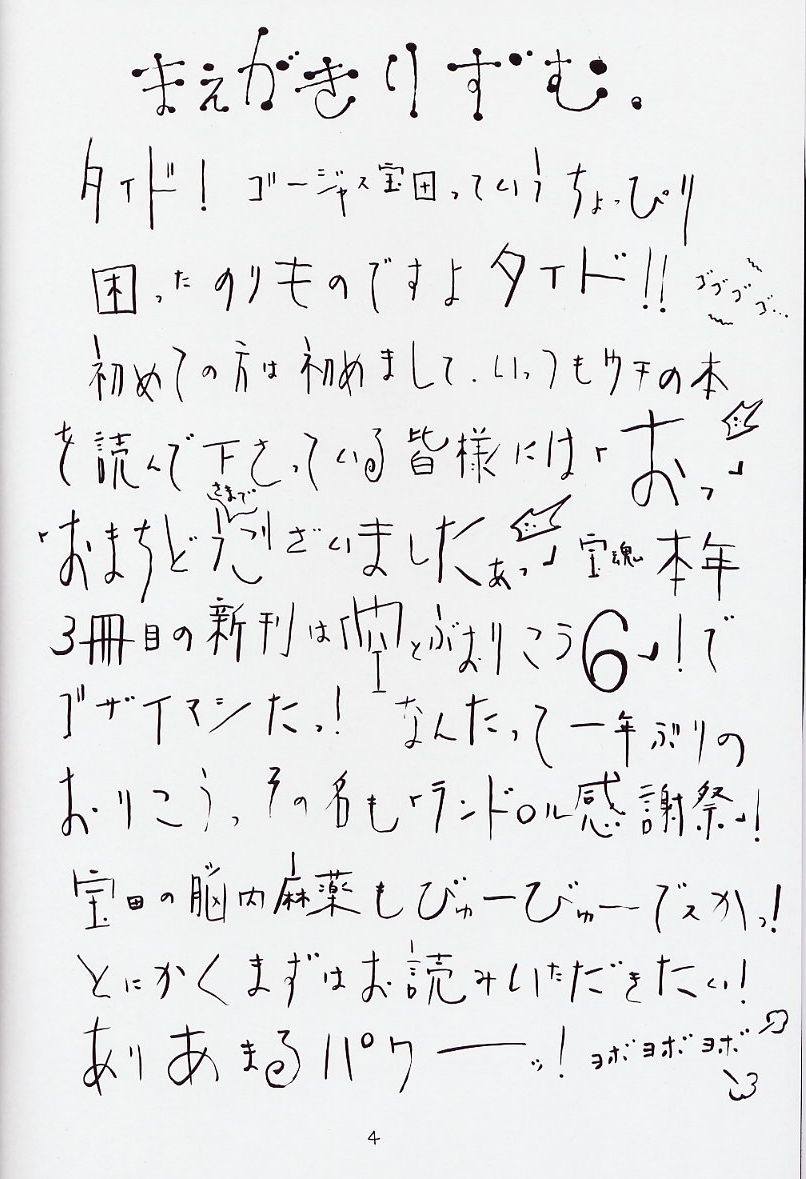 まえがきりずむ。
タイド! ゴージャス宝田っていうちょっぴり
困ったのりものですよタイド!! ゴゴゴゴ…
初めての方は初めまして、いっつもウチの本
を読んで下さっている皆様には「おっ」
さまで
「おまちどうございましたぁっ」宝魂 本年
3冊目の新刊は「空とぶおりこう6」!で
ゴザイマシたっ! なんたって一年ぶりの
おりこうっ その名も「ランドロル感謝祭」!
宝田の脳内麻薬もびゅーびゅーでスかっ!
とにかくまずはお読みいただきたい!
ありあまるパワーッ! ヨボヨボヨボ
4